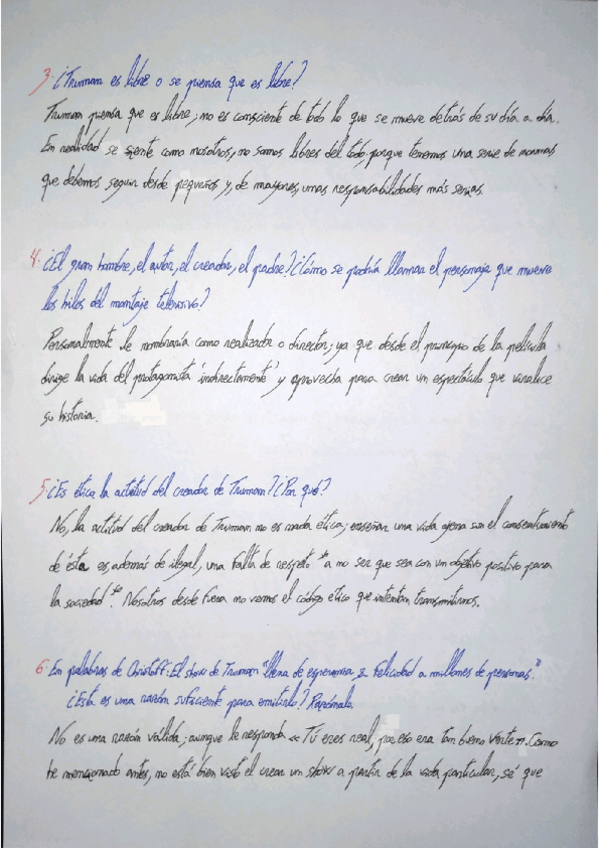 3. ¿Truman es libre o se piensa que es libre?
Truman piensa que es libre; no es consciente de todo lo que se mueve detrás de su día a día.
En realidad se siente como nosotros, no somos libres del todo porque tenemos una serie de normas
que debemos seguir desde pequeños y, de mayores, unas responsabilidades más serias.
4. ¿El gran hombre, el autor, el creador, el padre? ¿Cómo se podría llamar el personaje que mueve
los hilos del montaje televisivo?
Personalmente le nombraría como realizador o director; ya que desde el principio de la película
dirige la vida del protagonista 'indirectamente' y aprovecha para crear un espectáculo que
su historia.
5. ¿Es ética la actitud del creador de Truman? ¿Por qué?
No, la actitud del creador de Truman no es nada ética; enseñar una vida ajena sin el consentimiento
de ésta es, además de ilegal, una falta de respeto "a no ser que sea con un objetivo positivo para
la sociedad". Nosotros desde fuera no vemos el código ético que intentan transmitirnos.
6. En palabras de Christoff: El show de Truman "llena de esperanza y felicidad a millones de personas."
¿Esta es una razón suficiente para emitirlo? Razónalo.
No es una razón válida; aunque le responda «Tú eres real, por eso era tan bueno verte». Como
he mencionado antes, no está bien visto el crear un show a partir de la vida particular, sé que